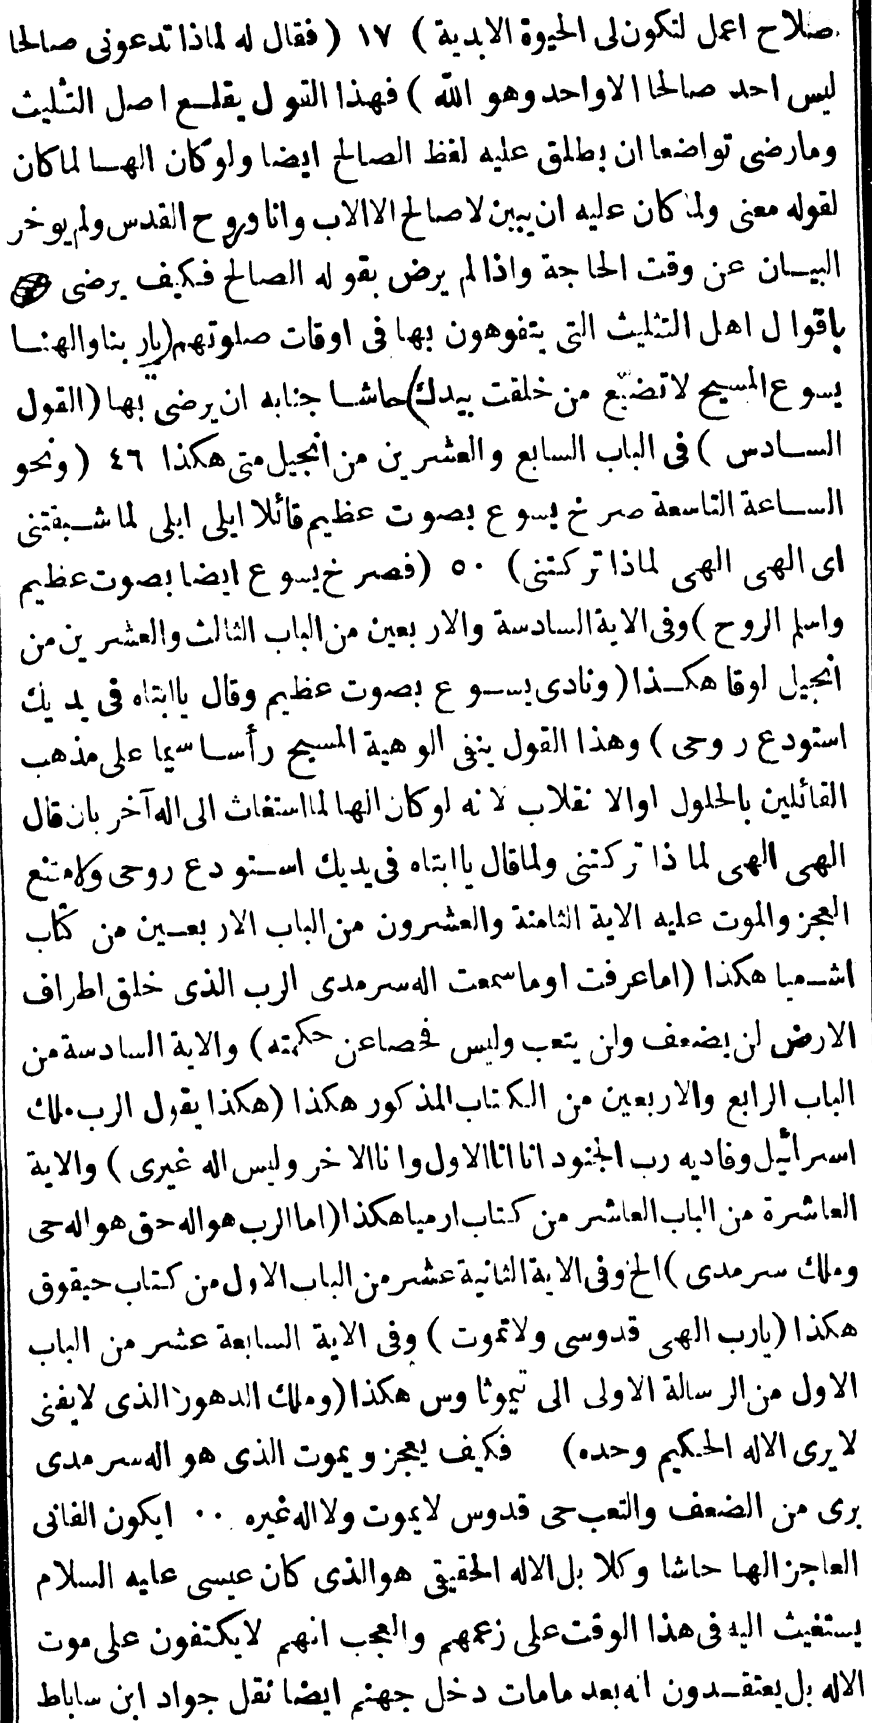 صلاح اعمل لتكون لى الحيوة الابدية ) ١٧ ( فقال له لماذا تدعونى صالحا
ليس احد صالحا الا واحد وهو الله ) فهذا القول يقلع اصل التثليث
وما رضى تواضعا ان يطلق عليه لفظ الصالح ايضا ولو كان الها لما كان
لقوله معنى ولكان عليه ان يبين لا صالح الا الاب وانا وروح القدس ولم يوخر
البيان عن وقت الحاجة واذا لم يرض بقوله الصالح فكيف يرضى
باقوال اهل التثليث التى يتفوهون بها فى اوقات صلوتهم ( يا ربنا والهنا
يسوع المسيح لا تضيّع من خلقت بيدك ) حاشا جنابه ان يرضى بها ( القول
السادس ) فى الباب السابع والعشرين من انجيل متى هكذا ٤٦ ( ونحو
الساعة التاسعة صرخ يسوع بصوت عظيم قائلا ايلى ايلى لما شبقتنى
اى الهى الهى لماذا تركتنى ) ٥٠ ( فصرخ يسوع ايضا بصوت عظيم
واسلم الروح ) وفى الاية السادسة والاربعين من الباب الثالث والعشرين من
انجيل لوقا هكذا ( ونادى يسوع بصوت عظيم وقال يا ابتاه فى يديك
استودع روحى ) وهذا القول ينفى الوهية المسيح رأسا سيما على مذهب
القائلين بالحلول او الانقلاب لانه لو كان الها لما استغاث الى اله آخر بان قال
الهى الهى لماذا تركتنى ولما قال يا ابتاه فى يديك استودع روحى ولامتنع
العجز والموت عليه الاية الثامنة والعشرون من الباب الاربعين من كتاب
اشعيا هكذا ( اما عرفت او ما سمعت اله سرمدى الرب الذى خلق اطراف
الارض لن يضعف ولن يتعب وليس فحصا عن حكمته ) والاية السادسة من
الباب الرابع والاربعين من الكتاب المذكور هكذا ( هكذا يقول الرب ملك
اسرائيل وفاديه رب الجنود انا انا الاول وانا الاخر وليس اله غيرى ) والاية
العاشرة من الباب العاشر من كتاب ارميا هكذا ( اما الرب هو اله حق هو اله حى
وملك سرمدى ) الخ وفى الاية الثانية عشر من الباب الاول من كتاب حيقوق
هكذا ( يا رب الهى قدوسى ولا تموت ) وفى الاية السابعة عشر من الباب
الاول من الرسالة الاولى الى تيموثاوس هكذا ( وملك الدهور الذى لا يفنى
لا يرى الاله الحكيم وحده ) فكيف يعجز ويموت الذى هو اله سرمدى
برى من الضعف والتعب حى قدوس لا يموت ولا اله غيره ٠٠ ايكون الفانى
العاجز الها حاشا وكلا بل الاله الحقيقى هو الذى كان عيسى عليه السلام
يستغيث اليه فى هذا الوقت على زعمهم والعجب انهم لا يكتفون على موت
الاله بل يعتقدون انه بعد ما مات دخل جهنم ايضا نقل جواد ابن ساباط